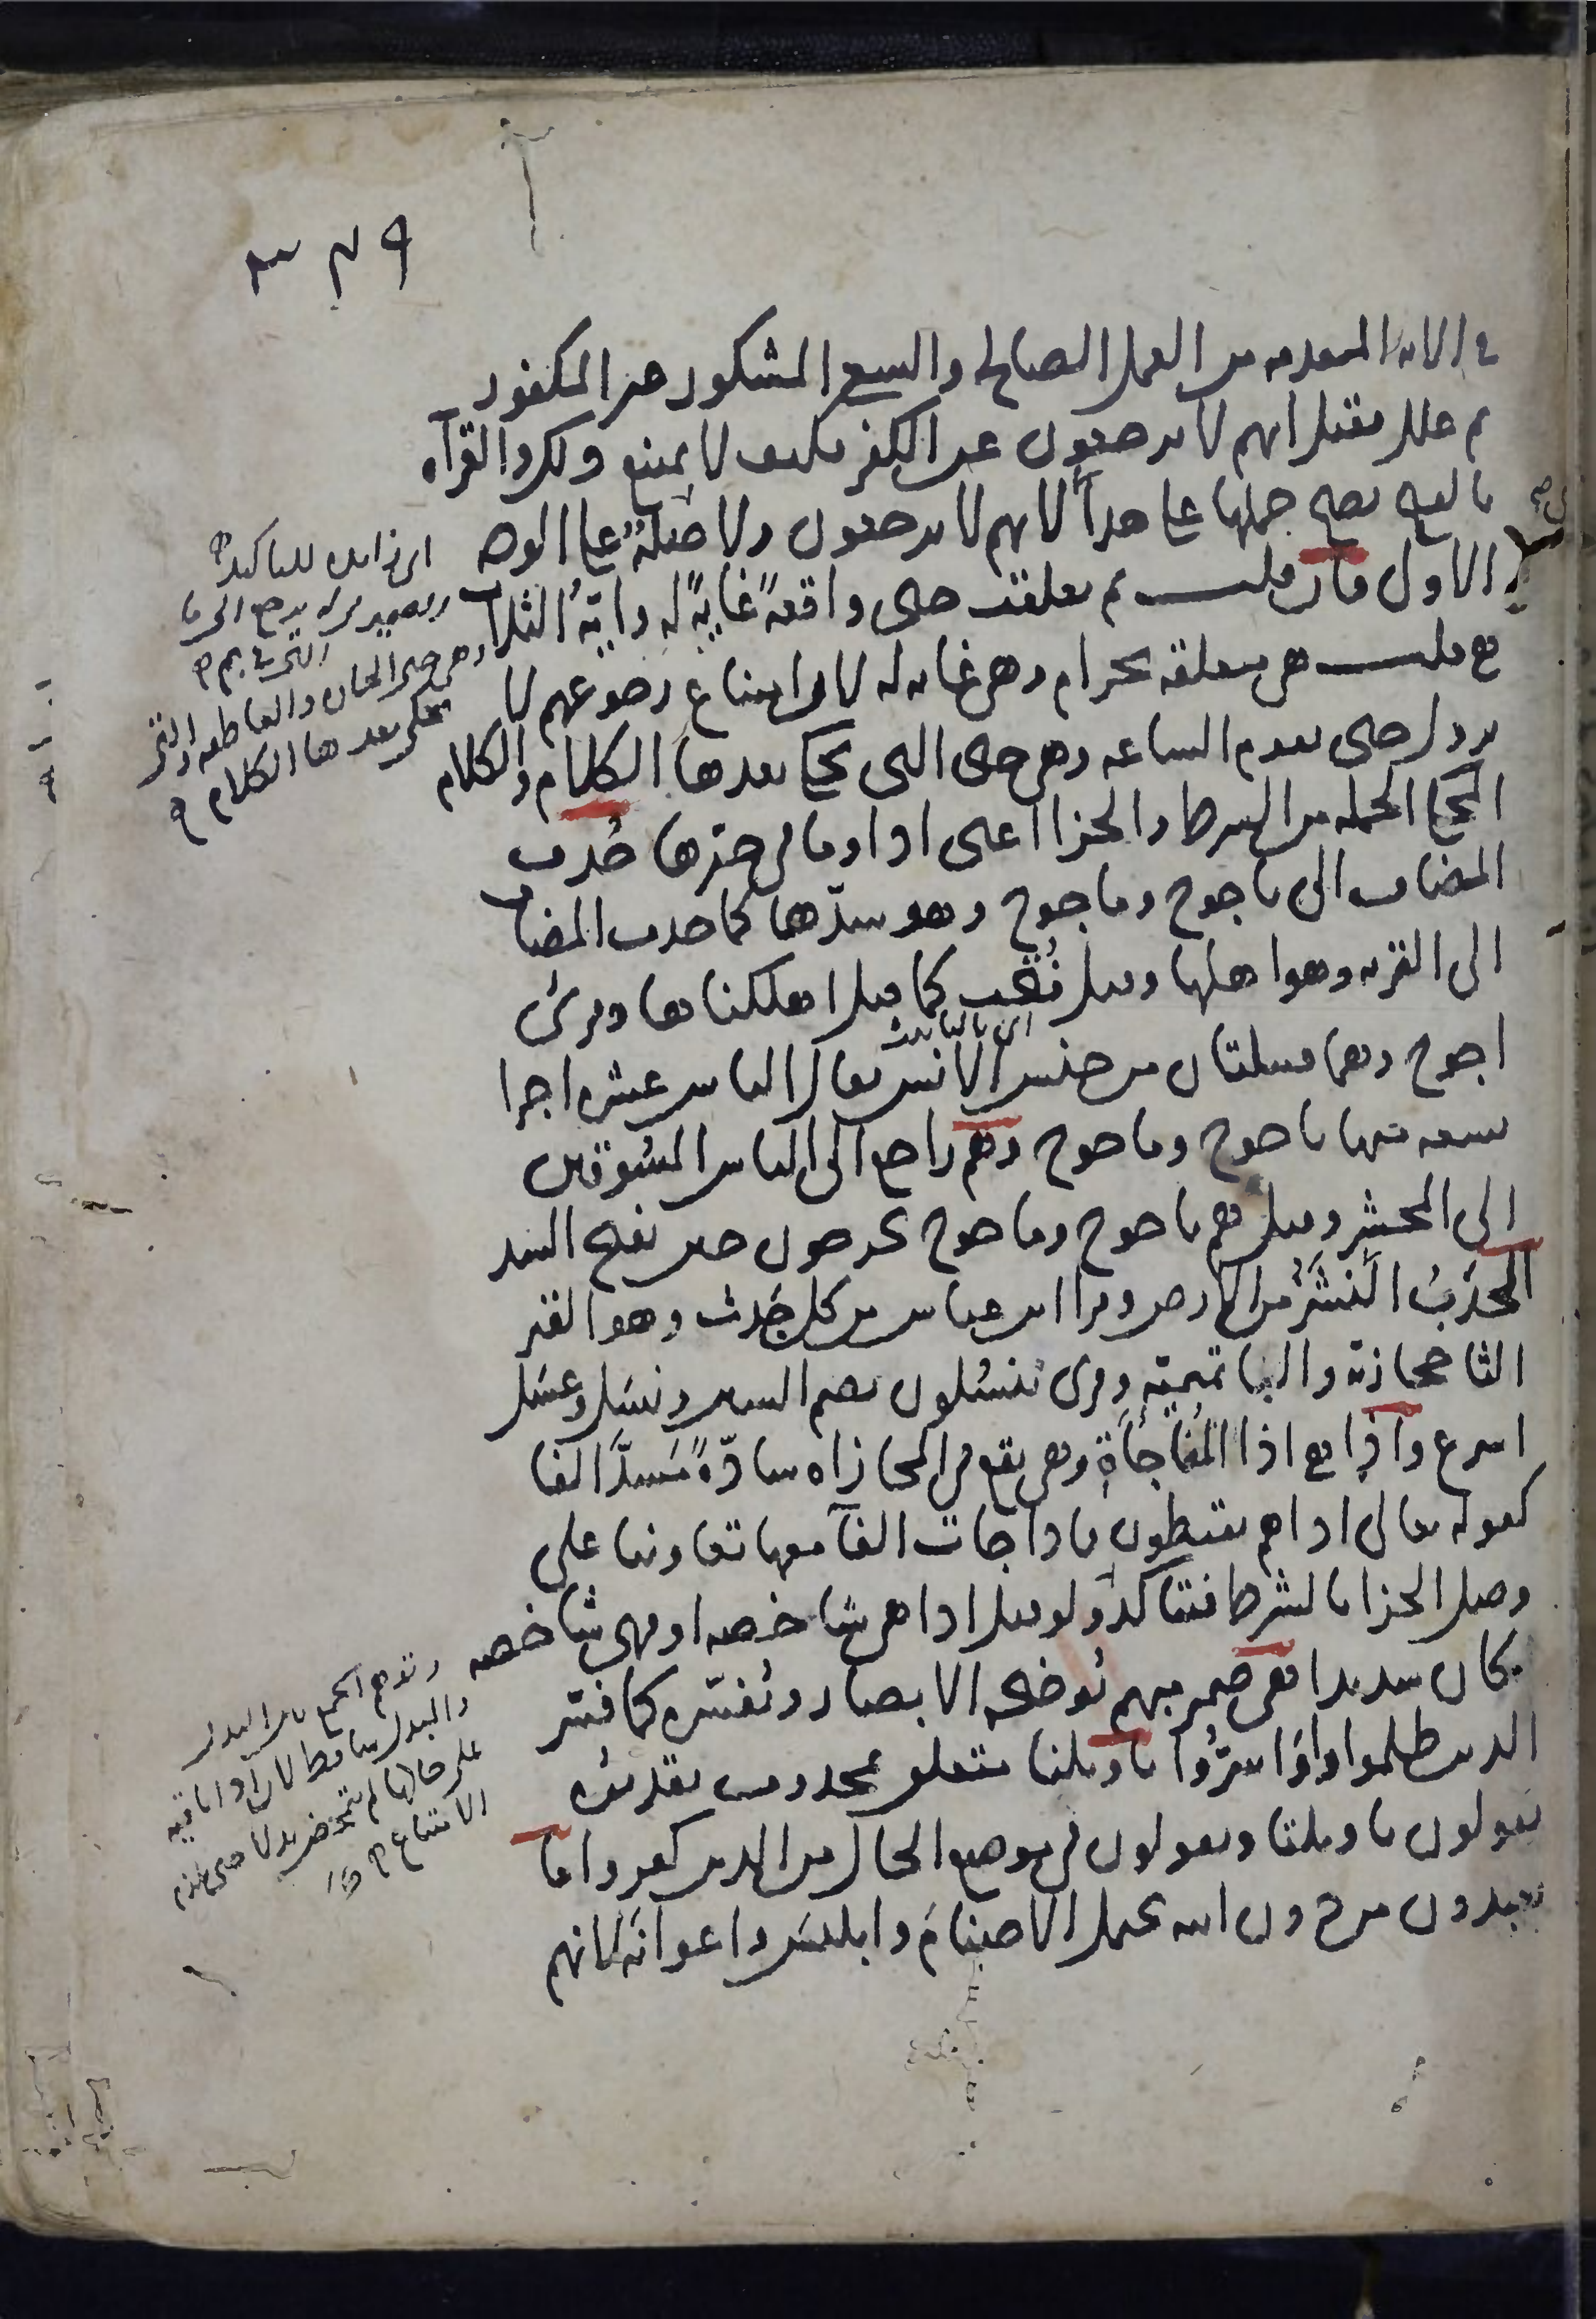 ٣٧٩
في الايه المتقدمه من العمل الصالح والسعي المشكور غير المكفور
ثم علل فقيل انهم لا يرجعون عن الكفر فكيف لا يمتنع ذلك والقرآه
بالفتح يصح حملها على هذا اي لانهم لا يرجعون ولا صلةٌ على الوجه
الاول فان قلت بم تعلقت حتى واقعةً غايةً له وايّةُ الثلاث
هي قلت هي متعلقه بحرام وهي غايه له لان امتناع رجوعهم لا
يزول حتى تقوم الساعه وهي حتى التي يحكى بعدها الكلام والكلام
المحكي الجمله من الشرط والجزا اعني اذا وما في حيزها حُذف
المضاف الى ياجوج وماجوج وهو سدّهما كما حذف المضاف
الى القريه وهو اهلها وقيل فُتحت كما قيل اهلكناها وقرئ
اجوج وهما قبيلتان من جنس الانس يقال الناس عشره اجزا
تسعه منها ياجوج وماجوج وهم راجع الى الناس المسُوقين
الى المحشر وقيل هم ياجوج وماجوج يخرجون حين يفتح السد
الحَدَبُ النَشَزُ من الارض وقرا ابن عباس من كل جَدث وهو القبر
الثا حجازية والفا تميمية وقرئ ينسُلون بضم السين ونسَل وعسَل
اسرع واذا هي اذا المُفاجأةِ وهي تقع في المجازاه سادّةً مَسَدَّ الفا
كقوله تعالى اذا هم يقنطون فاذا جات الفآ معها تعاونتا على
وصل الجزا بالشرط فيتاكد ولو قيل اذا هي شاخصه او فهي شاخصه
كان سديدا هي ضمير مبهم تُوضحه الابصار وتُفسّره كما فسّر
الذين ظلموا واوَ اسرّوا يا ويلنا متعلق بمحذوف تقديرُه
يقولون يا ويلنا ويقولون في موضع الحال من الذين كفروا ما
تعبدون من دون الله يحتمل الاصنامَ وابليسَ واعوانَه لانهم
اي بالتانيث
اي زايده للتاكيد
والضمير في له يرجع الى ما
التي في بم
وهي حتى الجاره والعاطفه والتي
يحكى بعدها الكلام
وتوهم الجمع بين البدل
والمبدل ساقط لان اذا باقيه
على حالها لم تتمحض بدلا حتى يلزم
الامتناع